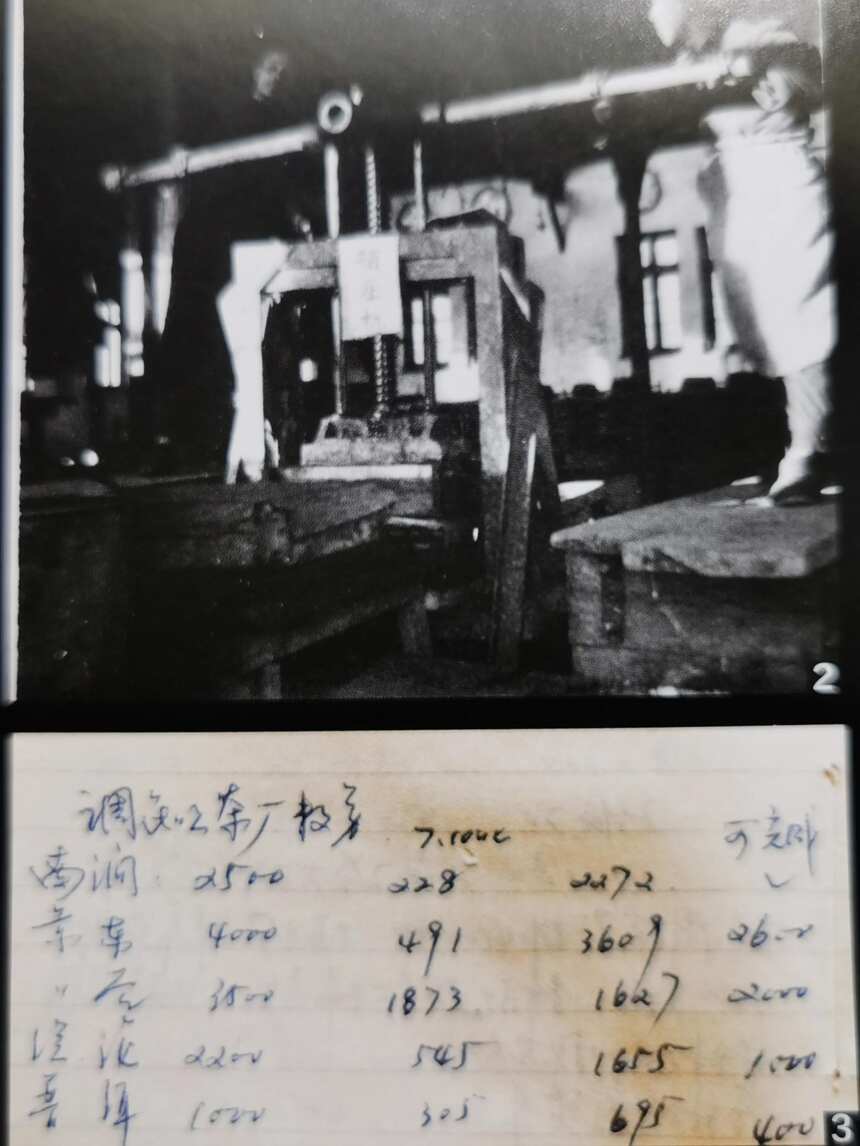 2
调 茶厂数
南涧 2500 228 2272
景东 4000 491 3609 2600
〃 谷 3500 1873 1627 2000
2200 545 1655 1000
普洱 1000 305 695 400
3